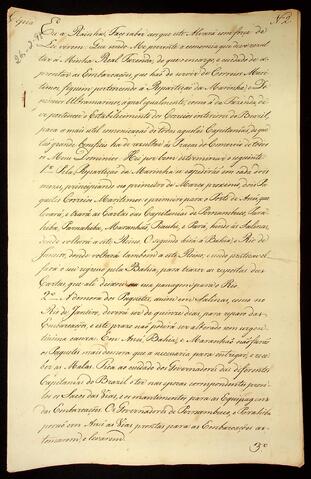 Copia
Nº 2.
Eu a Rainha, Faço saber aos que este Alvará com força de
Lei virem: Que sendo-Me presente a economia que deve resul-
tar á Minha Real Fazenda, de que encarregue o cuidado de a-
promtar as Embarcações, que hão de servir de Correios Mari-
timos, fiquem pertencendo á Repartição da Marinha, e Do-
minios Ultramarinos, á qual igualmente, como a da Fazenda, de-
ve pertencer o Estabelecimento dos Correios interiores do Brazil,
para a mais util communicação de todas aquellas Capitanías, de que
tão grande beneficio ha de resultar ás Praças do Commercio de todos
os Meus Dominios: Hei por bem determinar o seguinte
1º Pela Repartição da Marinha se expedirão em cada dois
mezes, principiando no primeiro de Março proximo, dois Pa-
quetes Correios Maritimos, o primeiro para o Porto de Assú, que
levará, e trará as Cartas das Capitanías de Pernambuco, Para-
hiba, Parnahiba, Maranhão, Piauhi, e Pará, hindo ás Salinas,
donde voltará a este Reino. O segundo hirá á Bahia, e Rio de
Janeiro, donde voltará tambem a este Reino,
fará o seu regresso pela Bahia, para trazer as repostas das
Cartas, que ali deixou na sua passagem para o Rio.
2º A demora dos Paquetes, assim em Salinas, como no
Rio de Janeiro, deverá ser de quinze dias, para reparo das
Embarcações, e este prazo não poderá ser alterado sem urgen-
tissima causa. Em Assú, Bahia, e Maranhão não farão
os Paquetes mais demora que a necessaria para entregar, e rece-
ber as Malas. Fica ao cuidado dos Governadores das differentes
Capitanías do Brazil o ter nas epocas correspondentes promp-
tos os Sacos das Vias, e os mantimentos para as Equipagens
das Embarcações. Os Governadores de Pernambuco, e Parahiba
porão em Assú as Vias promptas para as Embarcações as
tomarem, e levarem.
3º